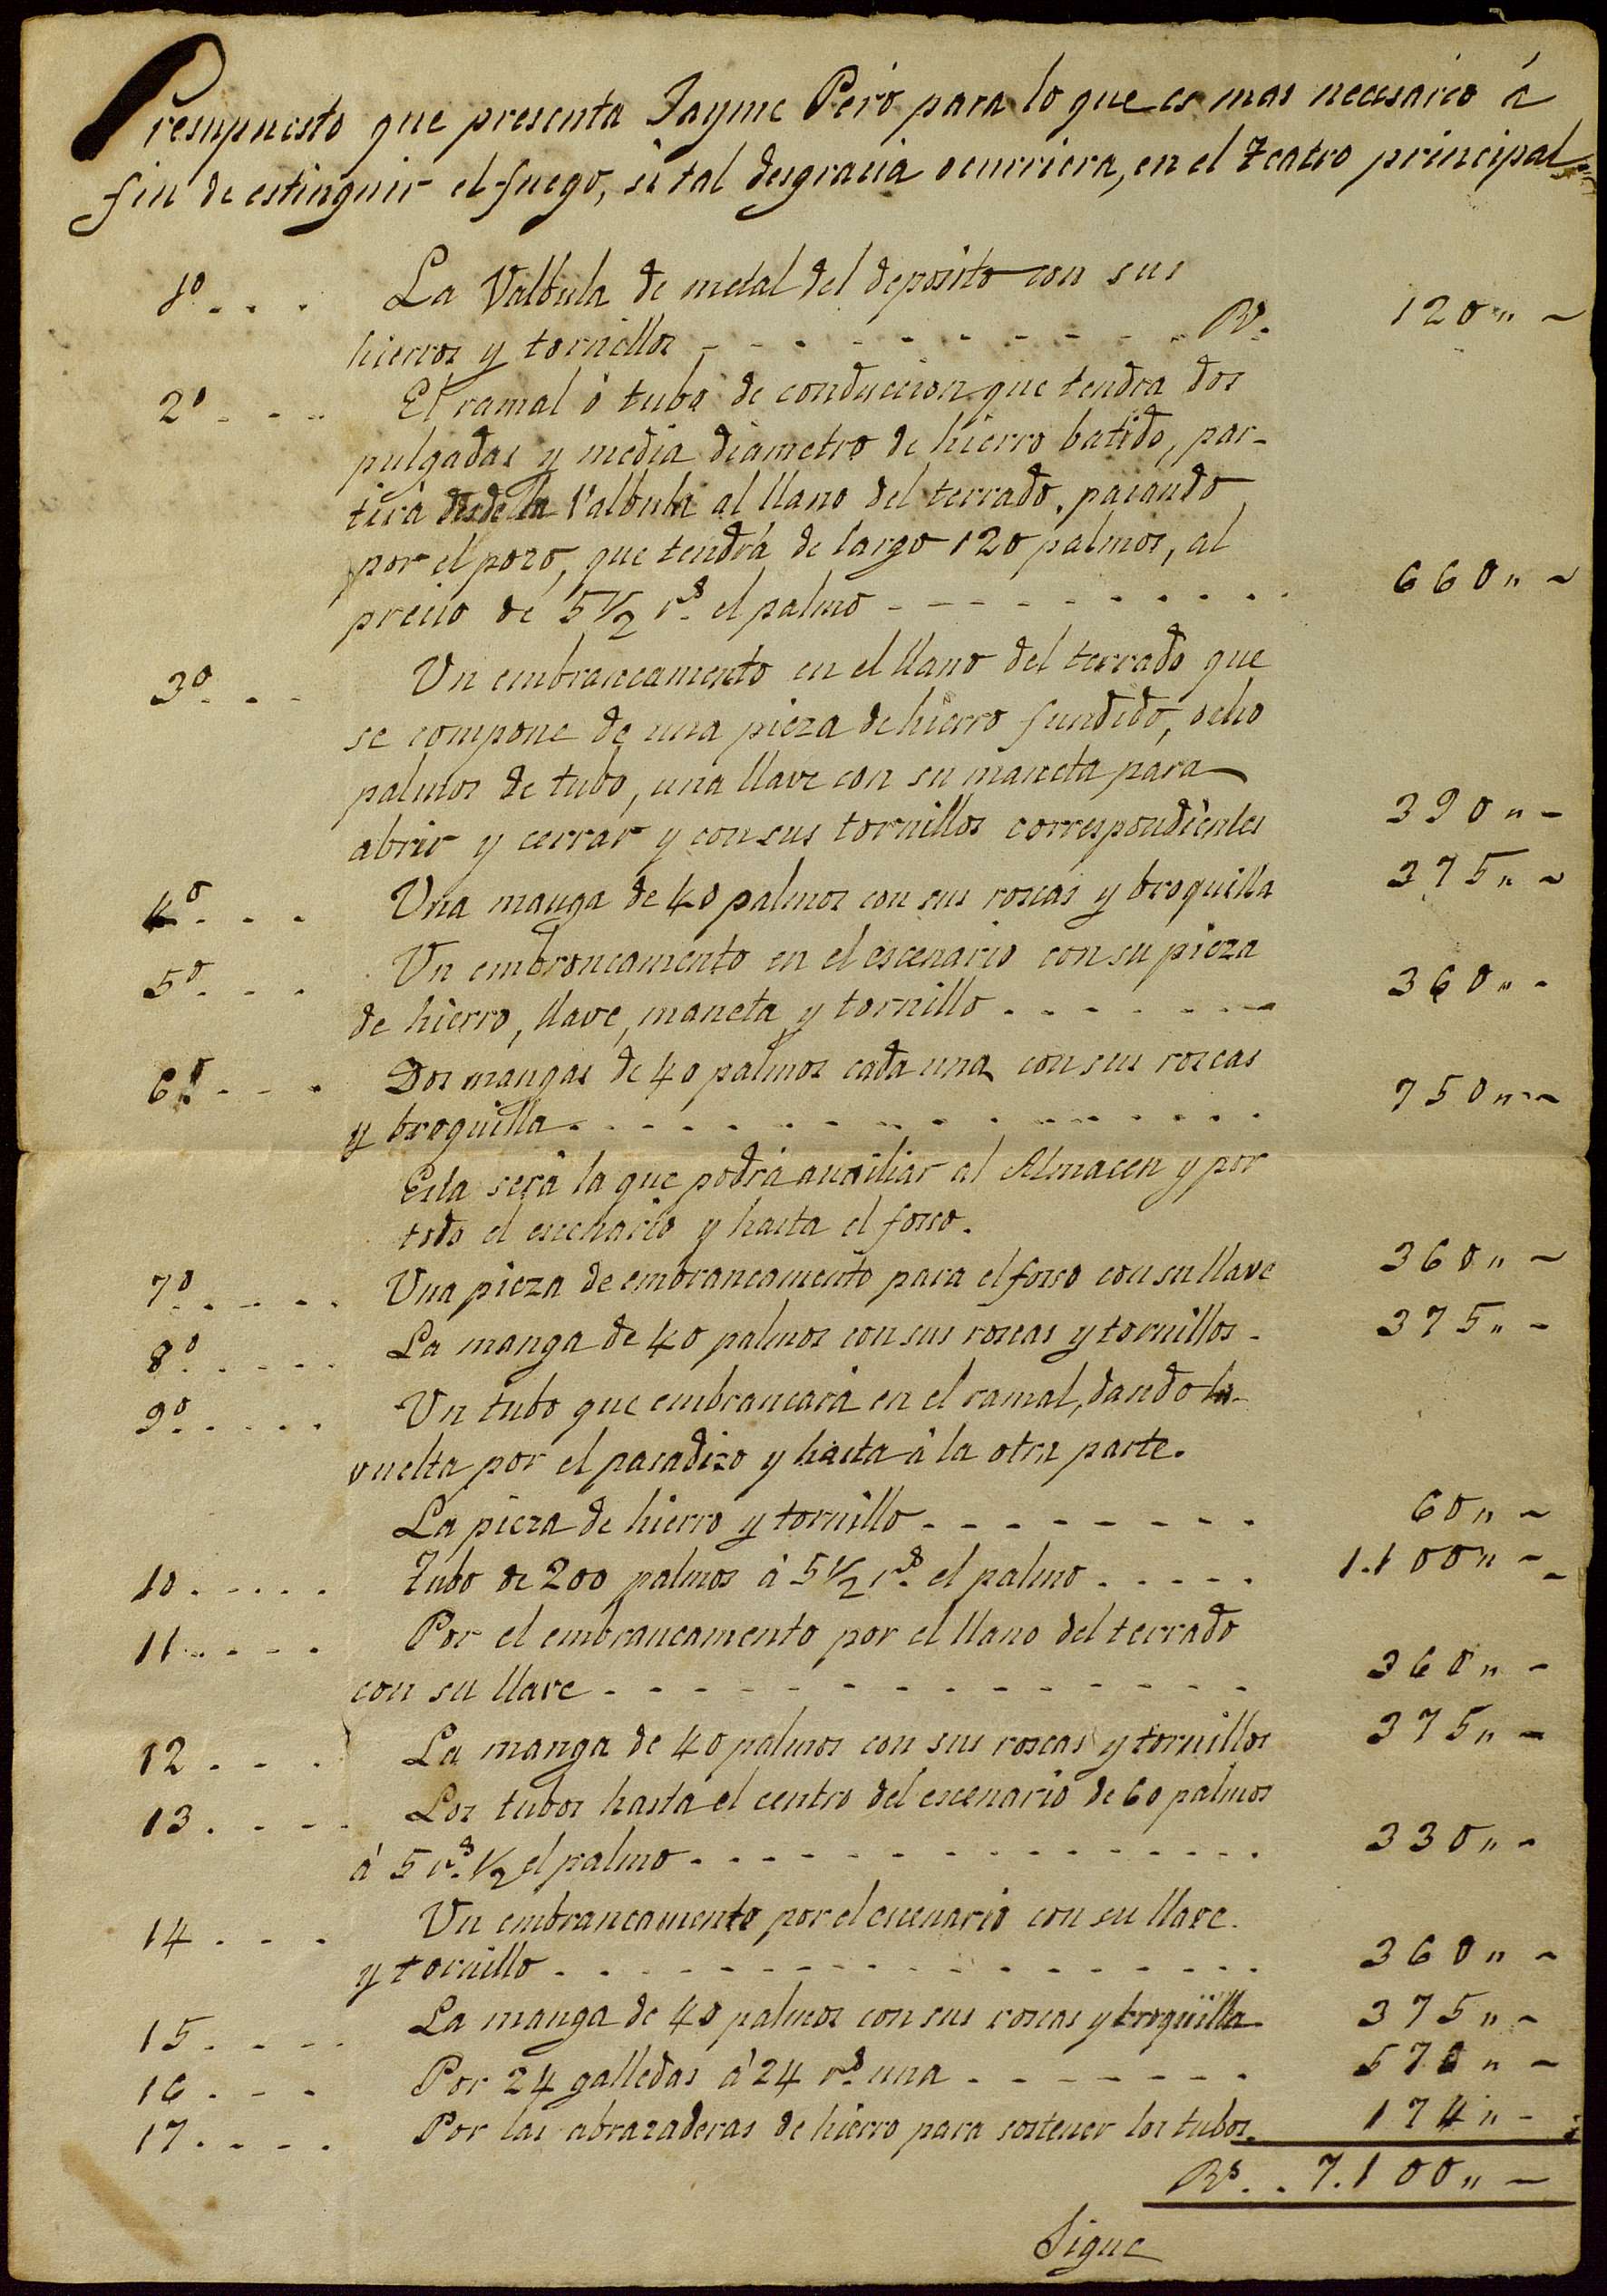 Presupuesto que presenta Jayme Peró para lo que es mas necesario á
fin de estinguir el fuego, si tal desgracia ocurriera, en el Teatro principal.
1º... La Valbula de metal del deposito con sus
hierros y tornillos - - - - - - - - - Rˢ. 120 „ -
2º... El ramal ó tubo de conduccion que tendra dos
pulgadas y media diametro de hierro batido, par-
tirá desde la Valbula al llano del terrado, pasando
por el pozo, que tendrá de largo 120 palmos, al
precio de 5 1/2 rˢ. el palmo - - - - - - - - - 660 „ -
3º... Un embrancamento en el llano del terrado que
se compone de una pieza de hierro fundido, ocho
palmos de tubo, una llave con su maneta para
abrir y cerrar y con sus tornillos correspondientes 390 „ -
4º... Una manga de 40 palmos con sus roscas y broquilla 375 „ -
5º... Un embroncamento en el escenario con su pieza
de hierro, llave, maneta y tornillo . . . . . . . 360 „ -
6º... Dos mangas de 40 palmos cada una con sus roscas
y broquilla . . . . . . . . . . . . . . . 750 „ -
Esta será la que podrá auxiliar al Almacen y por
todo el escenario y hasta el foso.
7º..... Una pieza de embrancamento para el foso con su llave 360 „ -
8º..... La manga de 40 palmos con sus roscas y tornillos - 375 „ -
9º..... Un tubo que embrancará en el ramal, dando la
vuelta por el pasadizo y hasta á la otra parte.
La pieza de hierro y tornillo - - - - - - - - 60 „ -
10..... Tubo de 200 palmos á 5 1/2 rˢ. el palmo . . . . . 1.100 „ -
11..... Por el embrancamento por el llano del terrado
con su llave - - - - - - - - - - - - - - - 360 „ -
12... La manga de 40 palmos con sus roscas y tornillos 375 „ -
13.... Los tubos hasta el centro del escenario de 60 palmos
á 5 rˢ. 1/2 el palmo - - - - - - - - - - - - - - 330 „ -
14... Un embrancamento por el escenario con su llave.
y tornillo . . . . . . . . . . . . . . . . . 360 „ -
15.... La manga de 40 palmos con sus roscas y broquilla. 375 „ -
16... Por 24 galledas á 24 rˢ. una - - - - - - - 576 „ -
17.... Por las abrazaderas de hierro para sostener los tubos. 174 „ -
Rˢ. . 7.100 „ -
Sigue